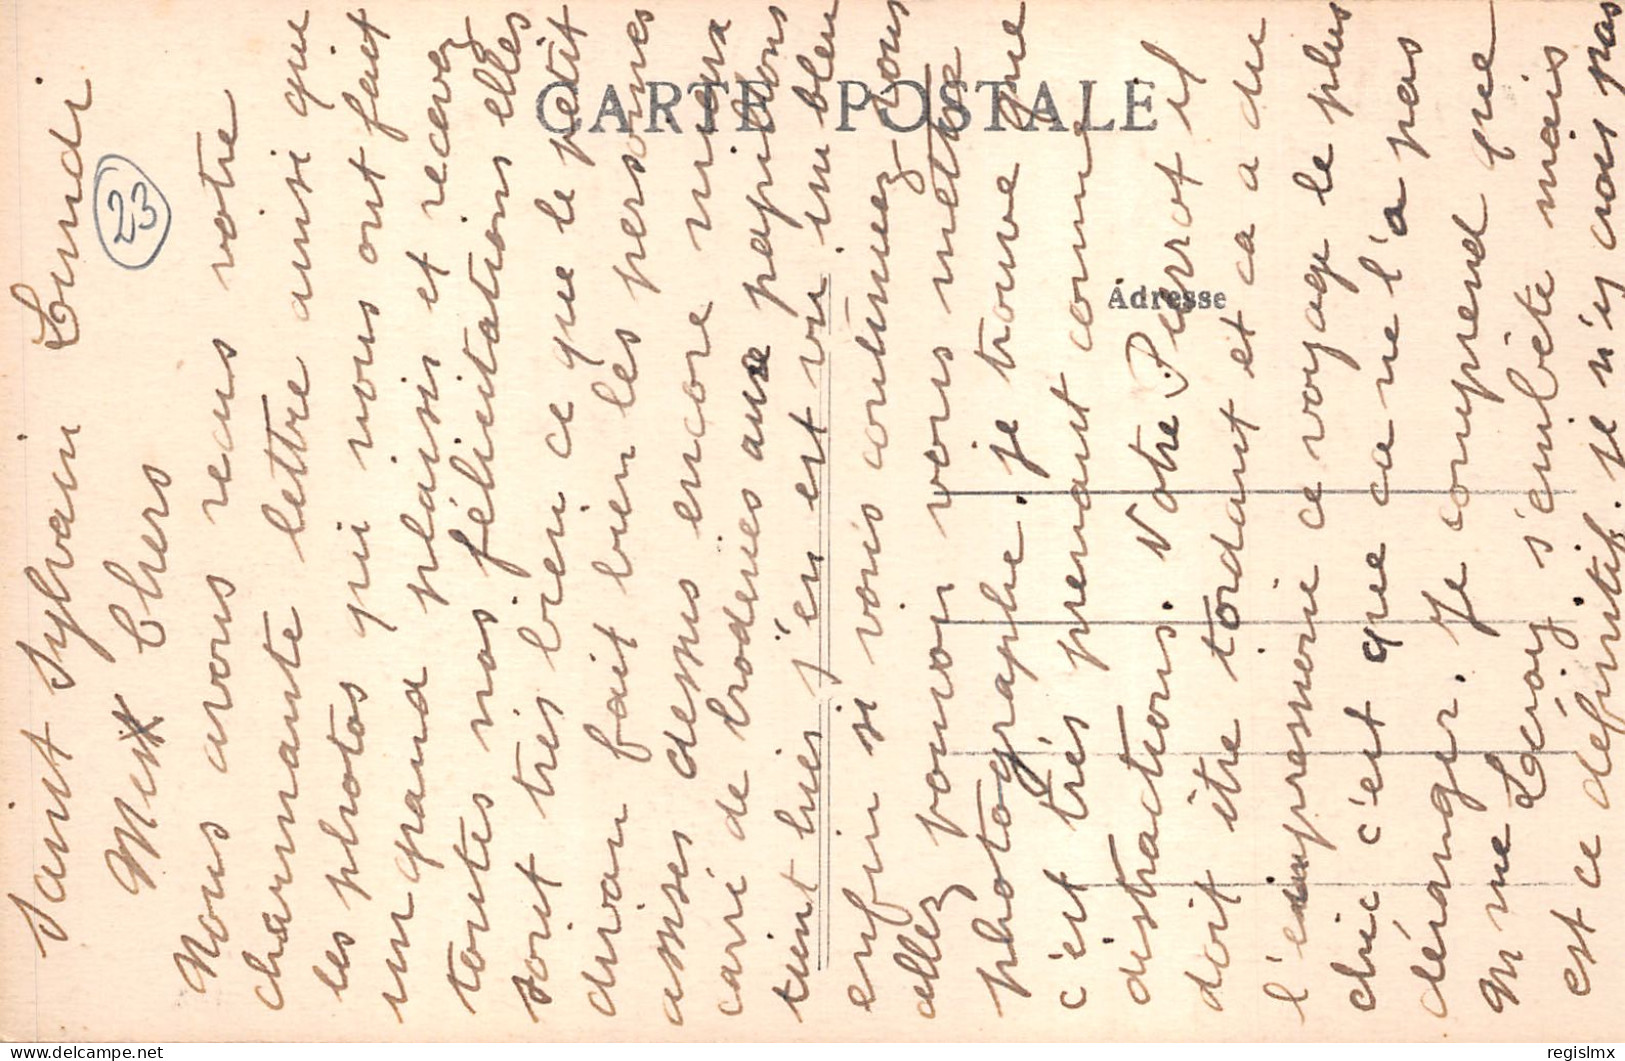 CARTE POSTALE
Adresse
23
Saint Sylvain Lundi
Mes Chers
Nous avons recus votre
charmante lettre ainsi que
les photos qui nous ont fait
un grand plaisir et recevez
toutes nos félicitations elles
sont très bien ce que le petit
divan fait bien les personnes
assises dessus encore mieux
carré de brodeuses aux papillons
tient hier j'en est vu un bleu
enfin si vous continuez vous
allez pouvoir vous mettre
photographe. je trouve que
c'est très prenant comme
distractions. Votre Pierrot il
doit être tordant et ca a du
l'impressioné ce voyage le plus
chic c'est que ca ne l'a pas
déranger. Je comprend que
Mme Leroy s'embête mais
est ce définitif. je n'y crois pas
regislmx